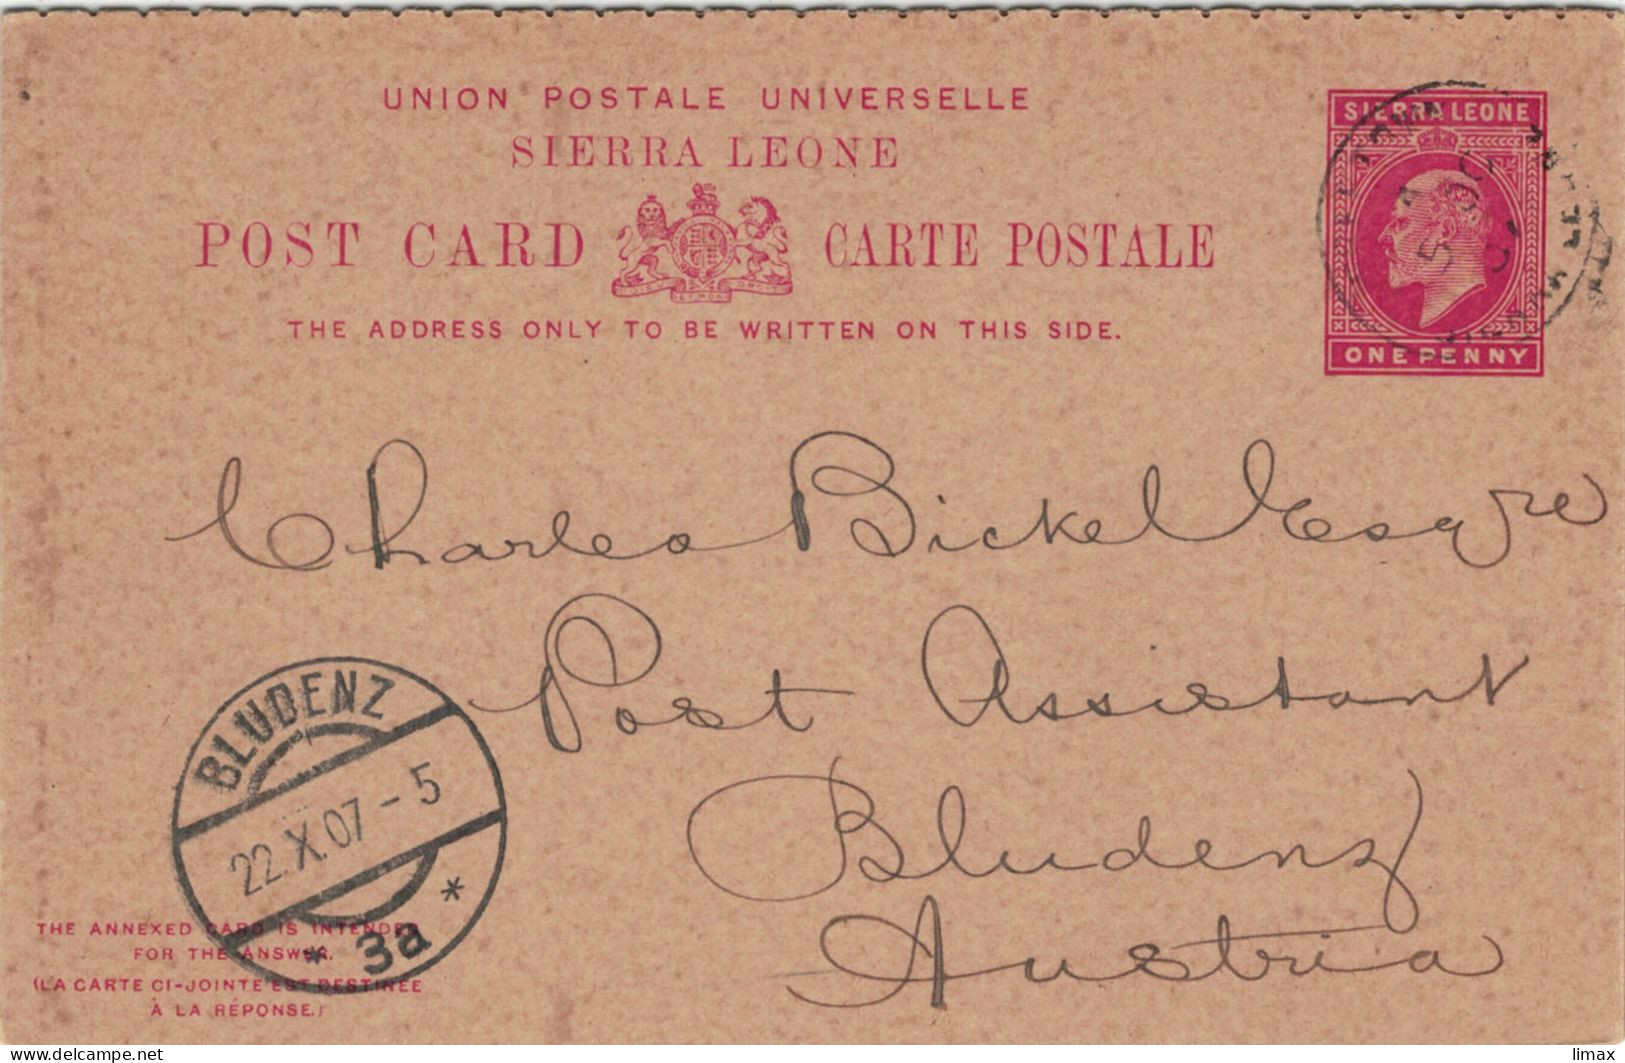 UNION POSTALE UNIVERSELLE
SIERRA LEONE
POST CARD CARTE POSTALE
THE ADDRESS ONLY TO BE WRITTEN ON THIS SIDE.
SIERRA LEONE
ONE PENNY
Charles Bickel Esqre
Post Assistant
Bludenz
Austria
BLUDENZ
22.X.07-5
* 3a *
THE ANNEXED CARD IS INTENDED
FOR THE ANSWER.
(LA CARTE CI-JOINTE EST DESTINÉE
À LA RÉPONSE.)
www.delcampe.net
limax